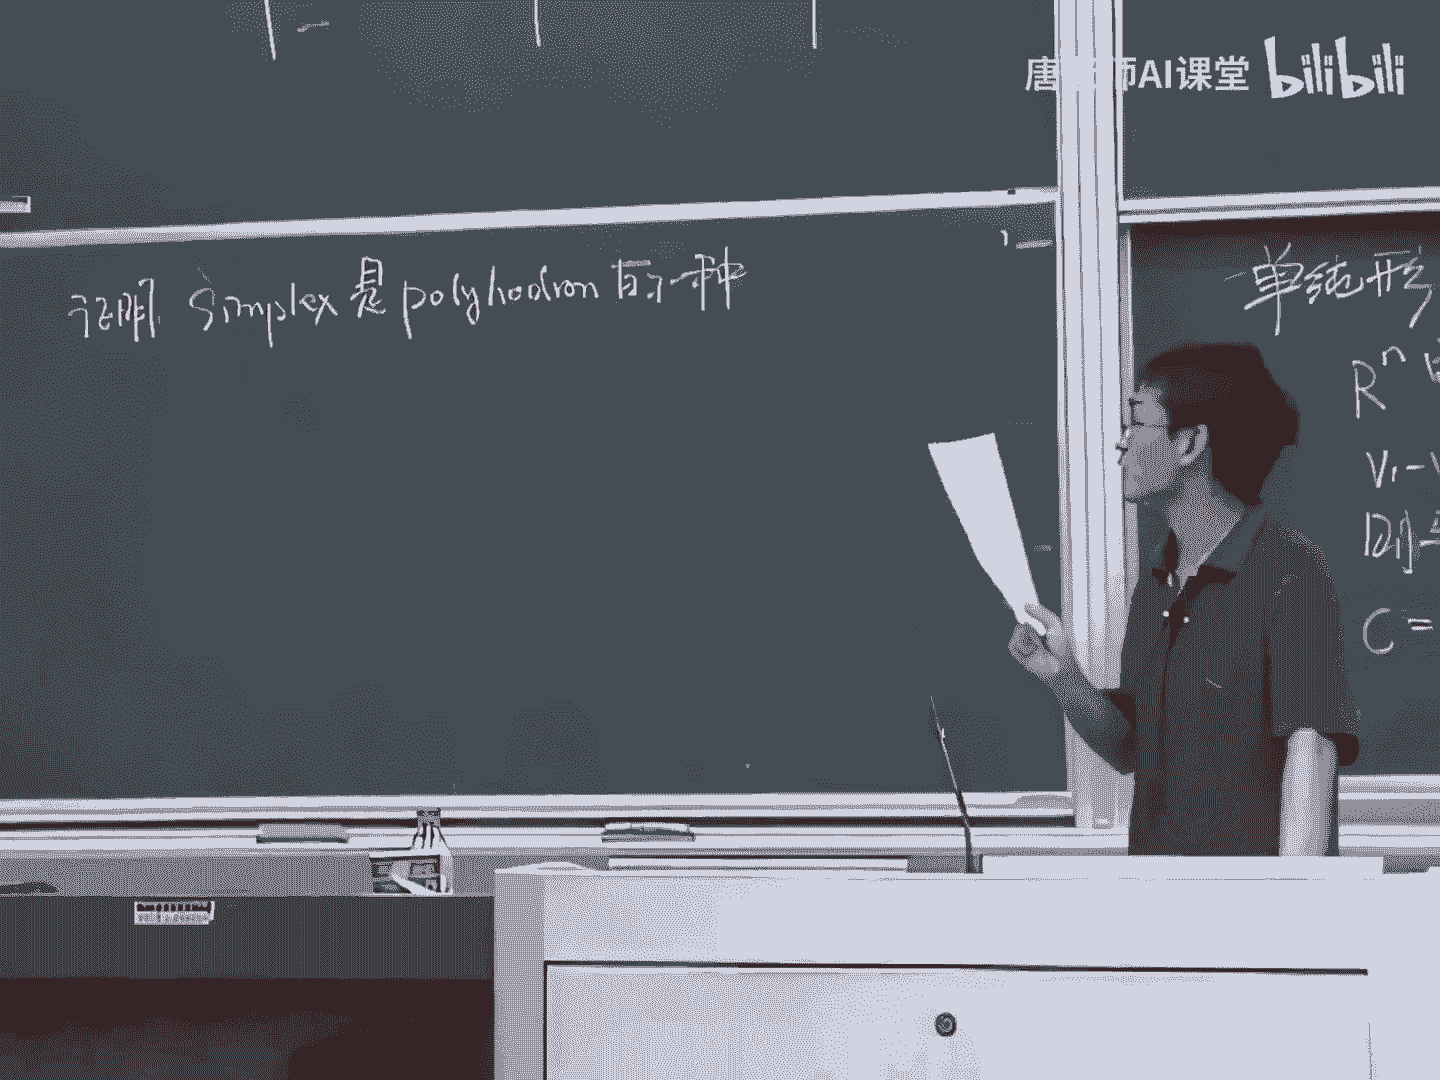 唐 师AI课堂 bilibili
证明 Simplex是polyhedron的一种
单纯形
R^n
V₁-V
则
C =